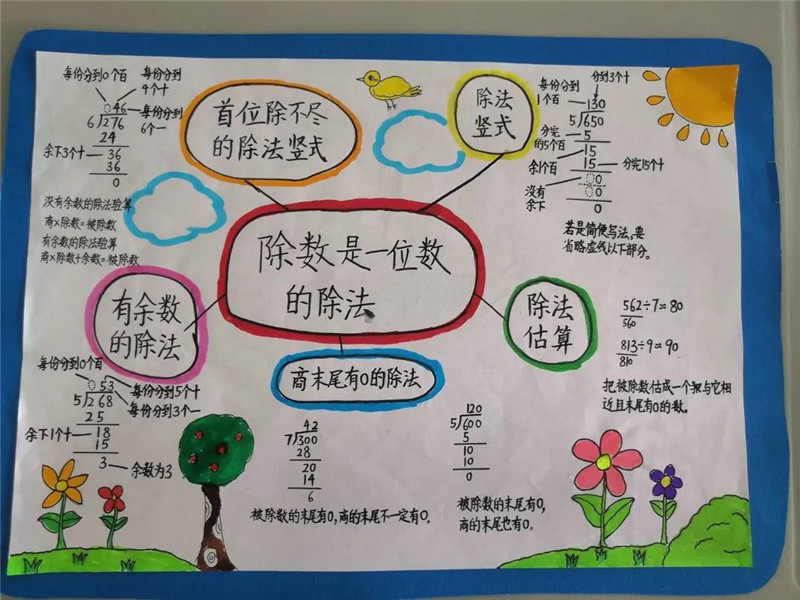 每份分到0个百
每份分到
4个十
046
6√276
每份分到
6个一
24
余下3个十
36
36
0
没有余数的除法验算
商×除数=被除数
有余数的除法验算
商×除数+余数=被除数
首位除不尽
的除法竖式
除法
竖式
每份分到
1个百
分到3个十
130
5√650
分完
的5个百
5
余1个百
15
15
分完15个十
00
没有
余下
0
0
若是简便写法,要
省略虚线以下部分。
除数是一位数
的除法
有余数
的除法
除法
估算
商末尾有0的除法
562÷7≈80
560
813÷9≈90
810
把被除数估成一个和与它相
近且末尾有0的数。
每份分到0个百
053
每份分到5个十
5√268
每份分到3个一
25
余下1个十
18
15
3
余数为3
42
7√300
28
20
14
6
被除数的末尾有0,商的末尾不一定有0。
120
5√600
5
10
10
0
被除数的末尾有0,
商的末尾也有0。